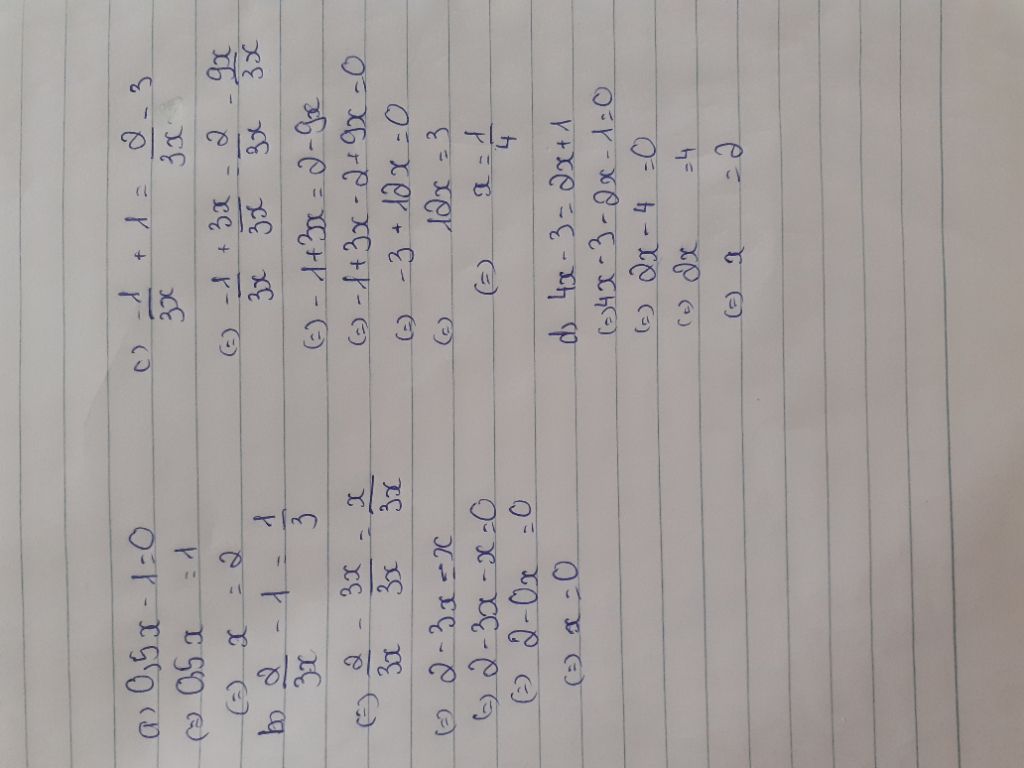 a) 0,5x - 1 = 0
(=) 0,5x = 1
(=) x = 2
b) 2/3x - 1 = 1/3
(=) 2/3x - 3x/3x = x/3x
(=) 2 - 3x = x
(=) 2 - 3x - x = 0
(=) 2 - 0x = 0
(=) x = 0
c) -1/3x + 1 = 2/3x - 3
(=) -1/3x + 3x/3x = 2/3x - 9x/3x
(=) -1 + 3x = 2 - 9x
(=) -1 + 3x - 2 + 9x = 0
(=) -3 + 12x = 0
(=) 12x = 3
(=) x = 1/4
d) 4x - 3 = 2x + 1
(=) 4x - 3 - 2x - 1 = 0
(=) 2x - 4 = 0
(=) 2x = 4
(=) x = 2